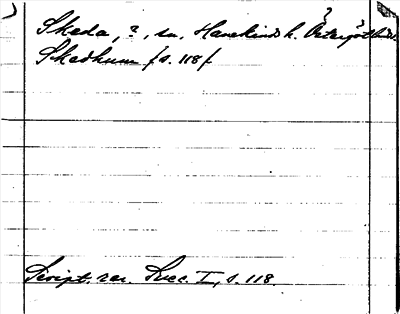 Skeda, ?, sn, Hanekinds h. Östergötland.
Skedhum /s. 118/
Script. rer. Suec. I, s. 118.